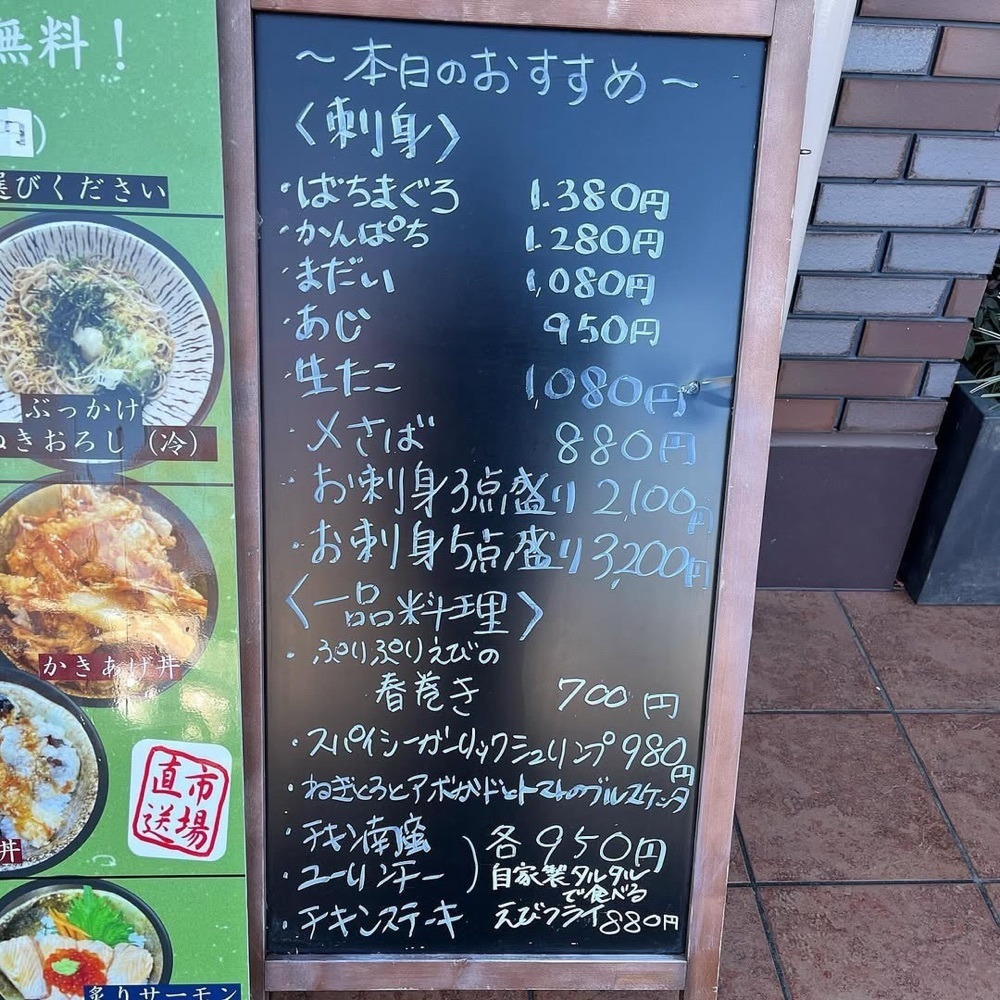 無料！
選びください
ぶっかけ
ねぎおろし（冷）
かきあげ丼
市場
直送
丼
炙りサーモン
～本日のおすすめ～
〈刺身〉
・ばちまぐろ 1.380円
・かんぱち 1.280円
・まだい 1,080円
・あじ 950円
・生たこ 1,080円
・〆さば 880円
・お刺身3点盛り 2,100円
・お刺身5点盛り 3,200円
〈一品料理〉
・ぷりぷりえびの
春巻き 700円
・スパイシーガーリックシュリンプ 980円
・ねぎとろとアボカドとトマトのブルスケッタ
・チキン南蛮
・ユーリンチー
・チキンステーキ
) 各950円
自家製タルタル
で食べる
えびフライ 880円